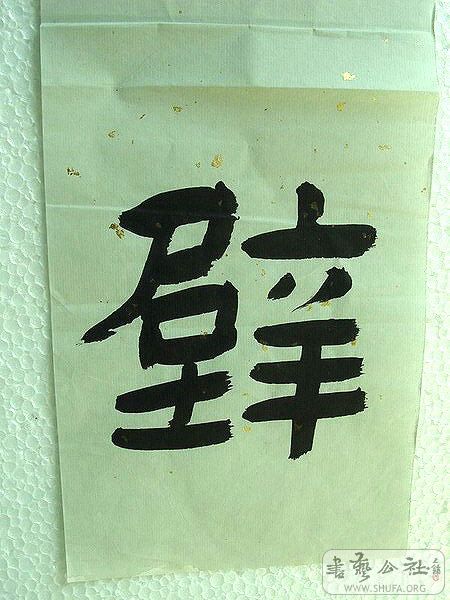 壁
書藝公社
WWW.SHUFA.ORG